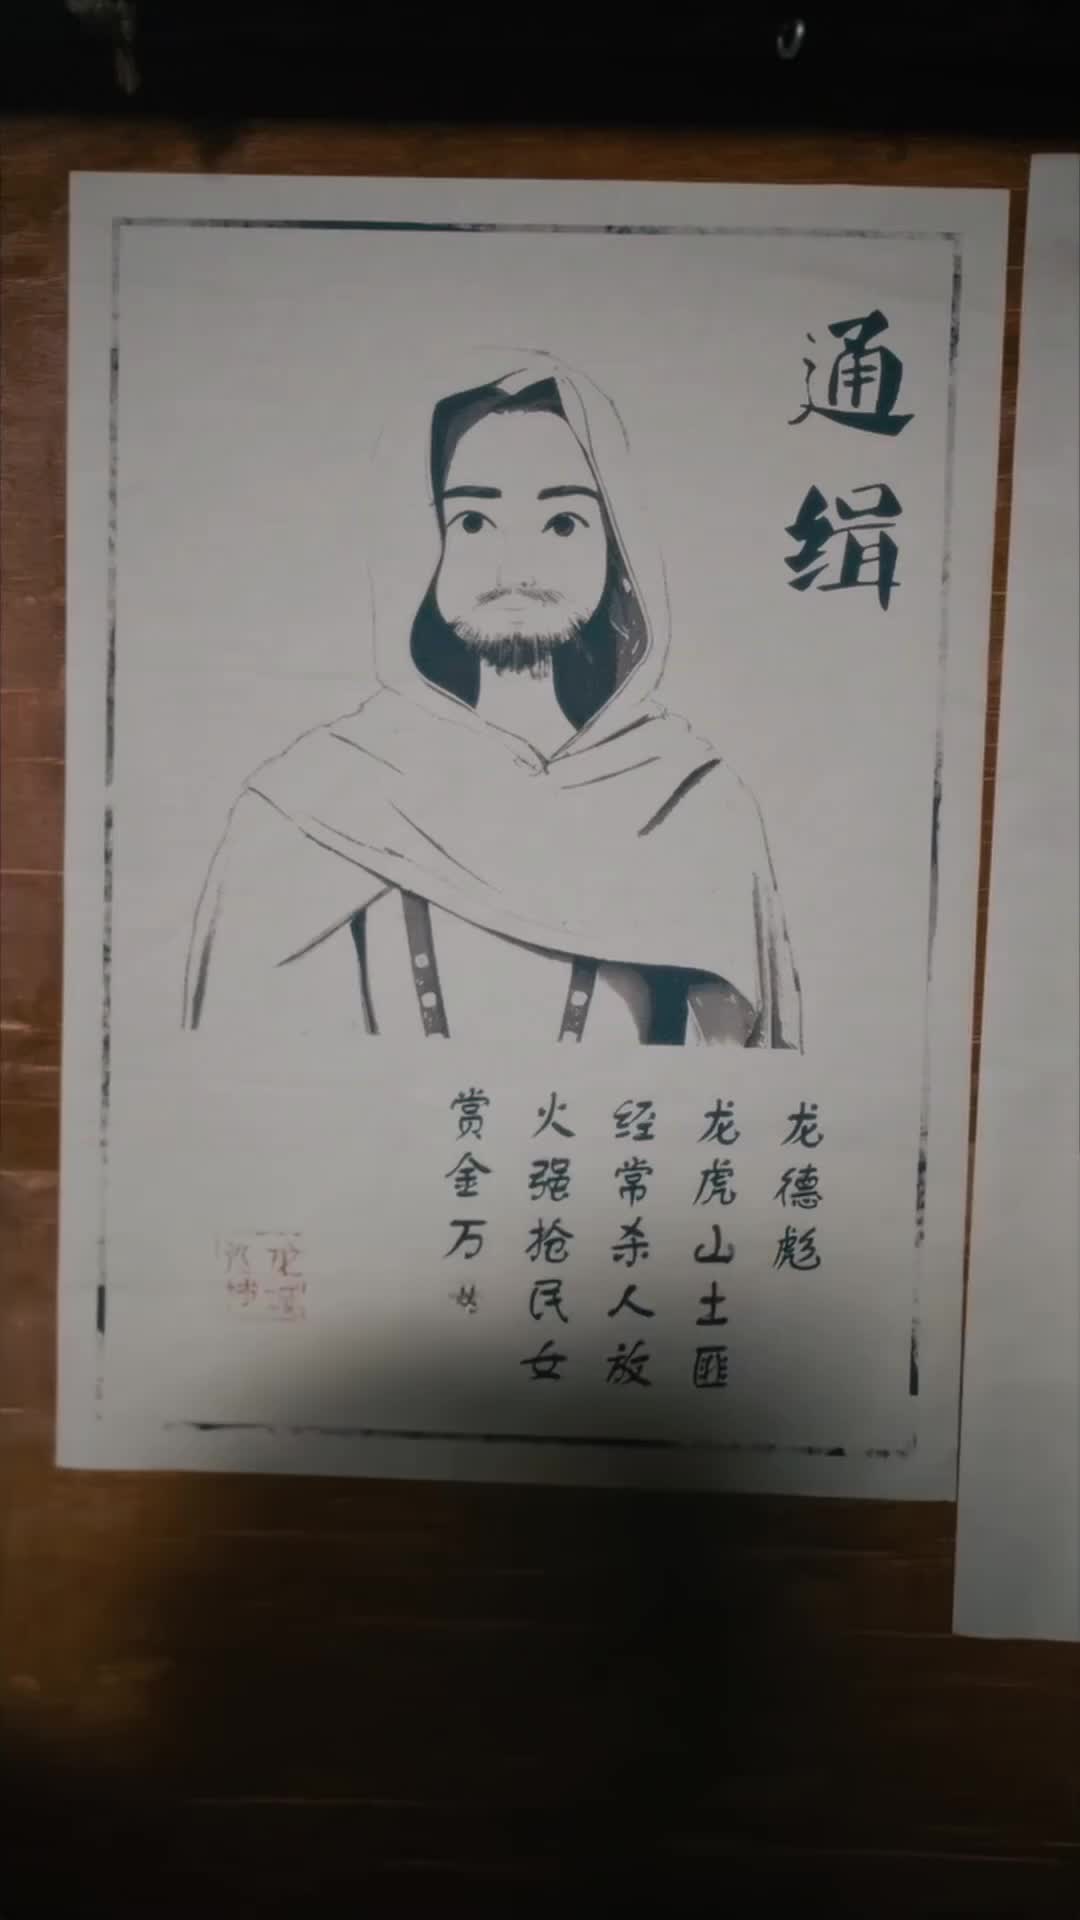 通缉
龙德彪
龙虎山土匪
经常杀人放
火强抢民女
赏金万